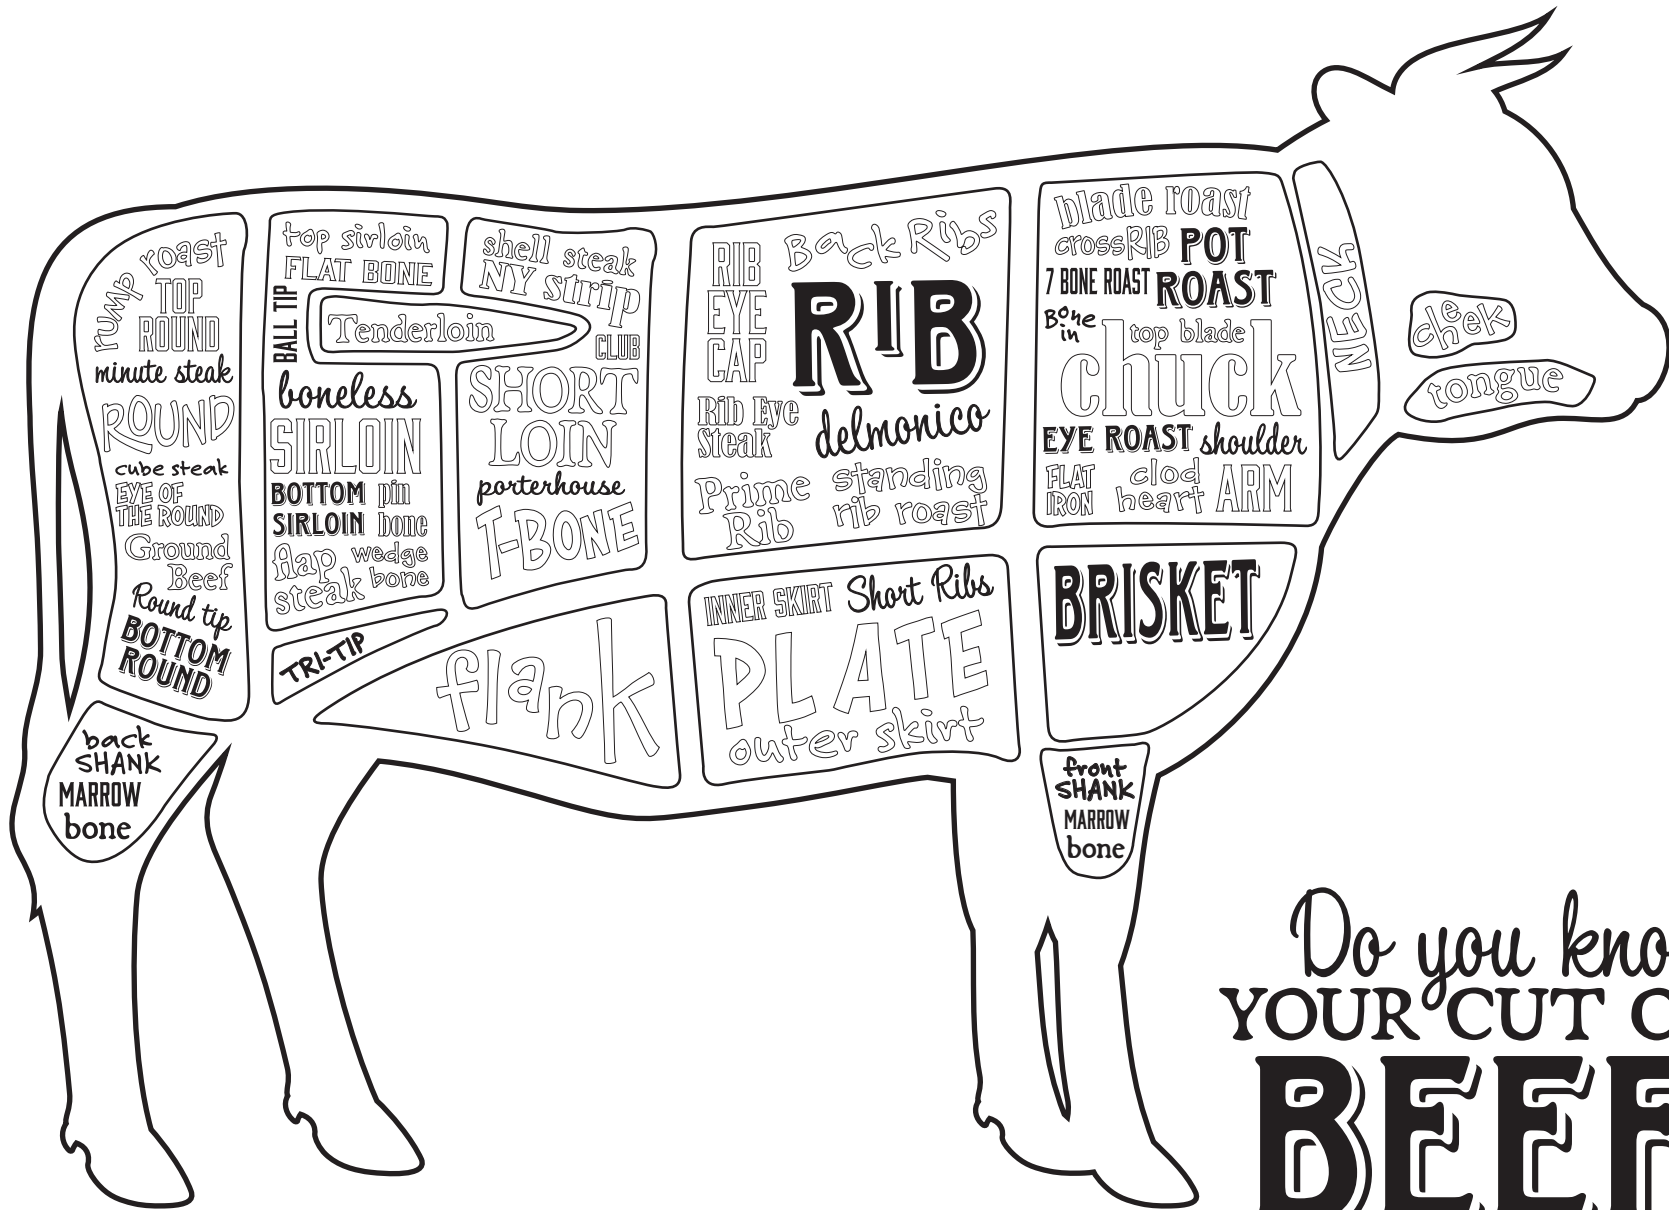 rump roast
TOP
ROUND
minute steak
ROUND
cube steak
EYE OF
THE ROUND
Ground
Beef
Round tip
BOTTOM
ROUND
back
SHANK
MARROW
bone
top sirloin
FLAT BONE
BALL TIP
boneless
SIRLOIN
BOTTOM
SIRLOIN
pin
bone
flap
steak
wedge
bone
TRI-TIP
Tenderloin
shell steak
NY strip
CLUB
SHORT
LOIN
porterhouse
T-BONE
flank
RIB
EYE
CAP
Back Ribs
RIB
Rib Eye
Steak
delmonico
Prime
Rib
standing
rib roast
INNER SKIRT
Short Ribs
PLATE
outer skirt
blade roast
crossRIB
POT
ROAST
7 BONE ROAST
Bone
in
top blade
chuck
EYE ROAST
shoulder
FLAT
IRON
clod
heart
ARM
BRISKET
front
SHANK
MARROW
bone
NECK
cheek
tongue
Do you kno
YOUR CUT O
BEEF